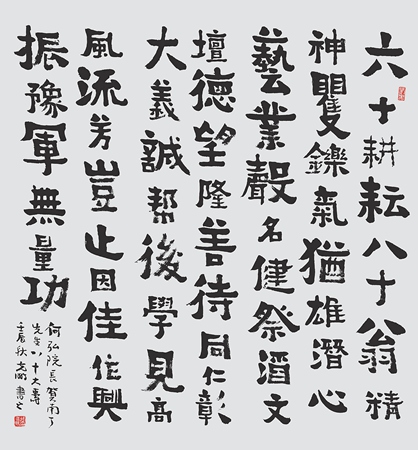 六十耕耘八十翁精
神矍鑠氣猶雄潛心
藝業聲名健祭酒文
壇德望隆善待同仁彰
大義誠帮後學見高
風流芳豈止因佳作興
振豫軍無量功
何弘院長賀南丁
先生八十大壽
壬辰秋書之